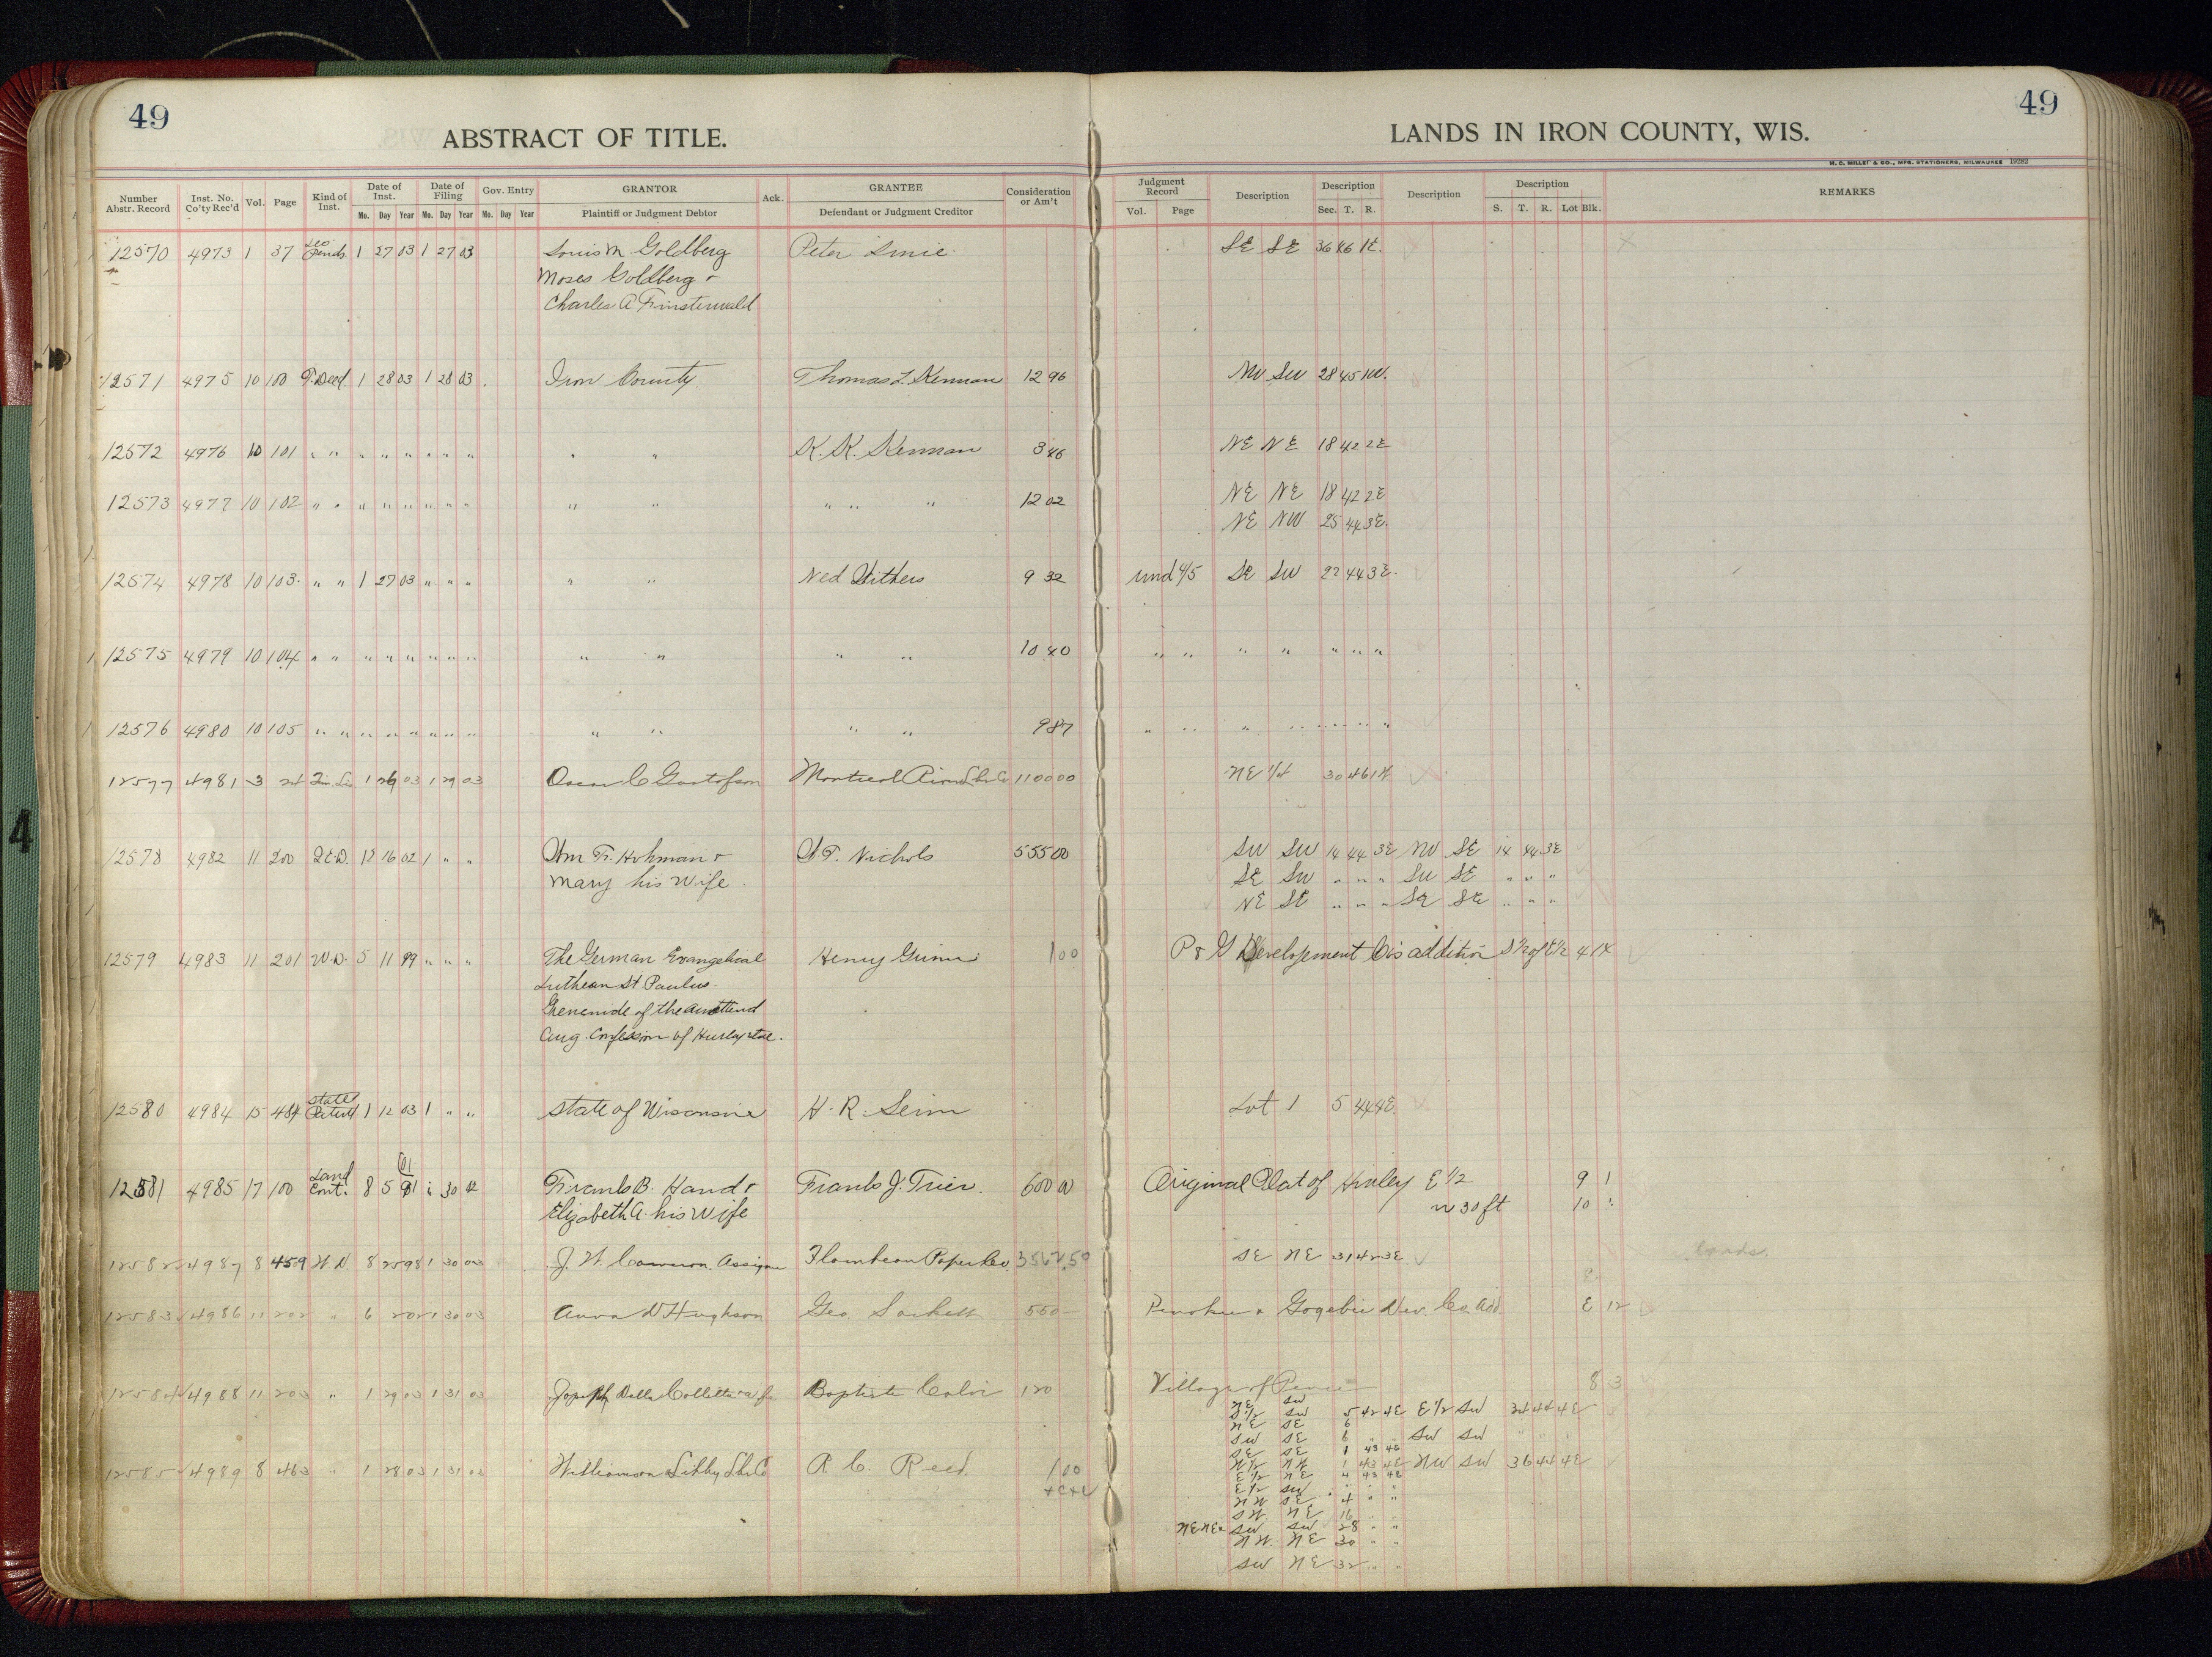 49
ABSTRACT OF TITLE.
49
LANDS IN IRON COUNTY, WIS.
H. C. MILLER & CO., MFG. STATIONERS, MILWAUKEE
Number Abstr. Record Inst. No. Co'ty Rec'd Vol. Page Kind of Inst. Date of Inst. Mo. Day Year Date of Filing Mo. Day Year Gov. Entry Mo. Day Year GRANTOR Plaintiff or Judgment Debtor Ack. GRANTEE Defendant or Judgment Creditor Consideration or Am't Judgment Record Vol. Page Description Description Sec. T. R. Description Description S. T. R. Lot Blk. REMARKS
12570 4973 1 37 Lis Pends. 1 27 03 1 27 03 Louis M. Goldberg Peter SE SE 36 46 1E.
Moses Goldberg &
Charles A Finsterwald
12571 4975 10 100 T. Deed. 1 28 03 1 28 03 Iron County Thomas L. Kennan 12 96 NW SW 28 45 1W.
12572 4976 10 101 " " " " " " " " " " K. K. Kennan 3 46 NE NE 18 42 2E
12573 4977 10 102 " " " " " " " " " " " " " 12 02 NE NE 18 42 2E
NE NW 25 44 3E.
12574 4978 10 103 " " 1 27 03 " " " " " Ned Withers 9 32 und 4/5 SE SW 22 44 3E.
12575 4979 10 104 " " " " " " " " " " " " 10 40 " " " " " " "
12576 4980 10 105 " " " " " " " " " " " " 9 87 " " " " " " "
12577 4981 3 24 1 26 03 1 29 03 Oscar C Gustafson Montreal River Lbr Co 1100 00 NE 1/4 30 46 1
12578 4982 11 200 Q.C.D. 12 16 02 1 " " Wm F. Hohman & W. F. Nichols 555 00 SW SW 14 44 3E NW SE 14 44 3E
Mary his Wife SE SW " " " SW SE " " "
NE SE " " " SE SE " " "
12579 4983 11 201 W.D. 5 11 99 " " " The German Evangelical Henry 1 00 P & G Development Co's addition S 1/2 of E 1/2 4 1X
Luthean St Paulus
of the
Aug. Confession of Hurley
12580 4984 15 484 State Patent 1 12 03 1 " " State of Wisconsin H. R. Seim Lot 1 5 44 4E.
01
12581 4985 17 100 Land Cont. 8 5 1 30 Frank B. Hand & Frank J. Trier. 600 00 Original Plat of Hurley E 1/2 9 1
Elizabeth A. his Wife N 30 ft 10 "
12582 4987 8 459 W.D. 8 25 98 1 30 03 J. W. Cameron. Assignee Flambeau Paper Co 3562.50 SE NE 31 42 3E
12583 4986 11 202 " 6 2 02 1 30 03 Anna W Hughson Geo. Sackett 550 Penokee & Gogebic Dev. Co. Add E 12
12584 4988 11 203 " 1 29 03 1 31 03 Joseph Della Colletta & wife Baptiste 120 Village of Pence 8 3
NE SW
S 1/2 SW 5 42 4E E 1/2 SW 34 44 4E
NE SE 6
SW SE 6 " " SW SW " " "
SE SE 1 43 4E
12585 4989 8 463 " 1 28 03 1 31 03 Williamson Libby Lbr Co A. C. Reed. 1 00 W 1/2 NW 1 43 4E NW SW 36 44 4E
E 1/2 NE 4 43 4E
E 1/2 SW " " "
NW SE 4 " "
SW. NE 16
NE NE & SW SW 28 " "
NW. NE 30 " "
SW NE 32 " "